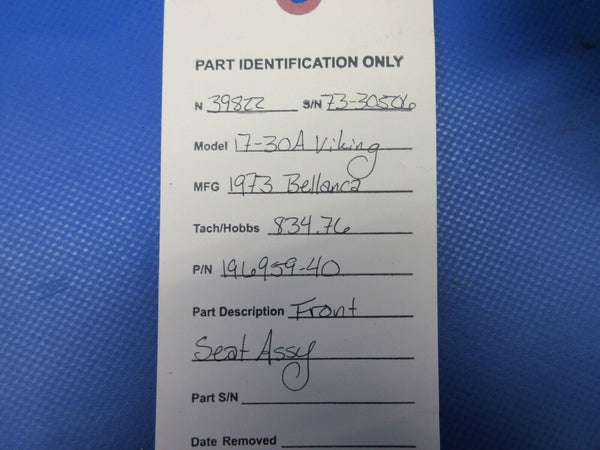 PART IDENTIFICATION ONLY
N 39822 S/N 73-30506
Model 17-30A Viking
MFG 1973 Bellanca
Tach/Hobbs 834.76
P/N 196959-40
Part Description Front
Seat Assy
Part S/N
Date Removed